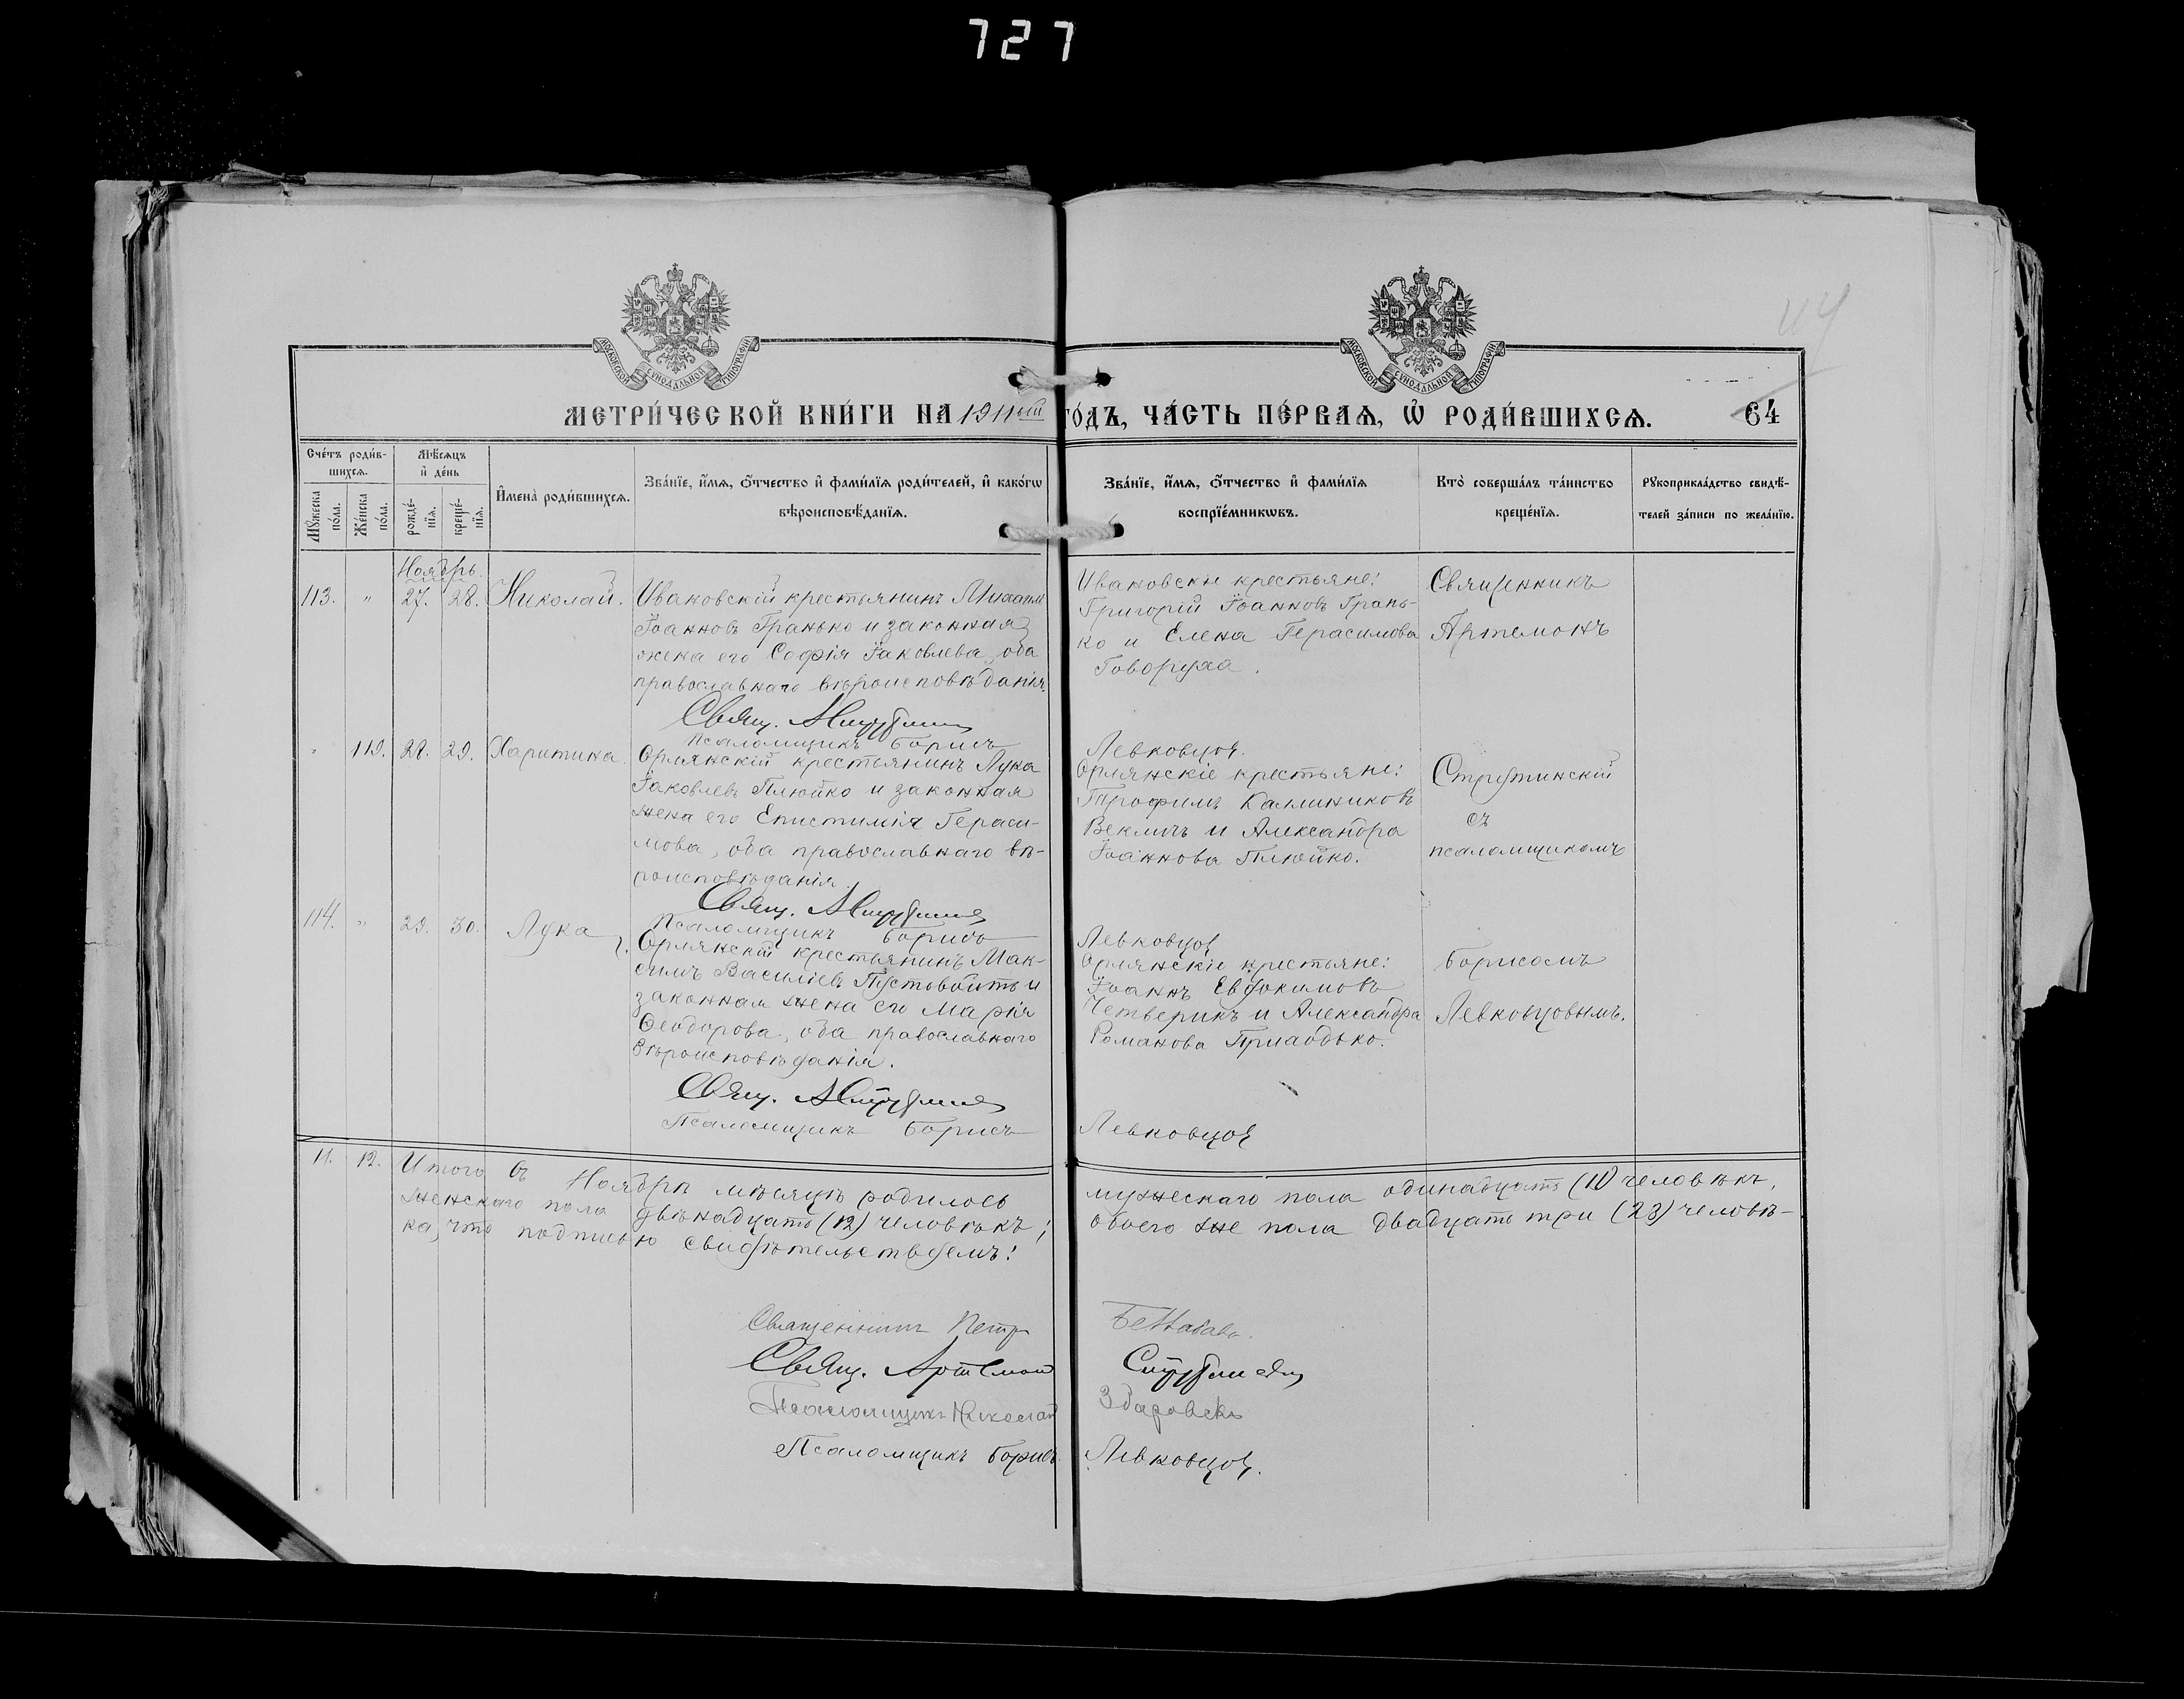 727
МОСКОВСКОЙ СѴНОДАЛЬНОЙ ТИПОГРАФІИ
МОСКОВСКОЙ СѴНОДАЛЬНОЙ ТИПОГРАФІИ
МЕТРИ́ЧЕСКОЙ КНИ́ГИ НА 1911ый ГО́ДЪ, ЧА́СТЬ ПЕ́РВАѦ, Ѡ҆ РОДИ́ВШИХСѦ.
64
Сче́тъ роди́в-
шихсѧ.
Мꙋ́жеска по́ла.
Же́нска по́ла.
Мѣ́сѧцъ
и҆ де́нь
рожде́-
нїѧ.
креще́-
нїѧ.
И҆мена̀ роди́вшихсѧ.
Зва́нїе, и҆́мѧ, ѻ҆́тчество и҆ фами́лїѧ роди́телей, и҆ како́гѡ
вѣроисповѣ́данїѧ.
Зва́нїе, и҆́мѧ, ѻ҆́тчество и҆ фами́лїѧ
воспрїе́мникѡвъ.
Кто̀ соверша́лъ та́инство
креще́нїѧ.
Рꙋкоприкла́дство свидѣ́-
телей за́писи по жела́нїю.
Ноябрь.
113. " 27. 28. Николай.
Ивановскій крестьянинъ Михаилъ
Іоанновъ Гранько и законная
жена его Софія Іаковлева, оба
православнаго вѣроисповѣданія.
Свящ. АСтрутинскій
Псаломщикъ Борисъ Левковцов.
Ивановскіе крестьяне:
Григорій Іоанновъ Грань-
ко и Елена Герасимова
Говоруха.
Священникъ
Артемонъ
" 119. 28. 29. Харитина.
Орлянскій крестьянинъ Лука
Іаковлевъ Плюйко и законная
жена его Епистимія Гераси-
мова, оба православнаго вѣ-
роисповѣданія.
Свящ. АСтрутинскій
Псаломщикъ Борисъ Левковцов
Орлянскіе крестьяне:
Трофимъ Калиниковъ
Векличъ и Александра
Іоаннова Плюйко.
Струтинскій
съ
псаломщикомъ
114. " 29. 30. Лука
Орлянскій крестьянинъ Мак-
симъ Василіевъ Пустовойтъ и
законная жена его Марія
Ѳеодорова, оба православнаго
вѣроисповѣданія.
Свящ. АСтрутинскій
Псаломщикъ Борисъ Левковцов
Орлянскіе крестьяне:
Іоаннъ Евдокимовъ
Четверикъ и Александра
Романова
Борисомъ
Левковцовымъ.
11. 12. Итого въ Ноябрѣ мѣсяцѣ родилось мужескаго пола одинадцать (11) человѣкъ,
женскаго пола двѣнадцать (12) человѣкъ; обоего же пола двадцать три (23) человѣ-
ка, что подписью свидѣтельствуемъ:
Священникъ Петръ
Свящ. Артемонъ Струтинскій
Псаломщикъ Николай
Псаломщикъ Борисъ Левковцов.